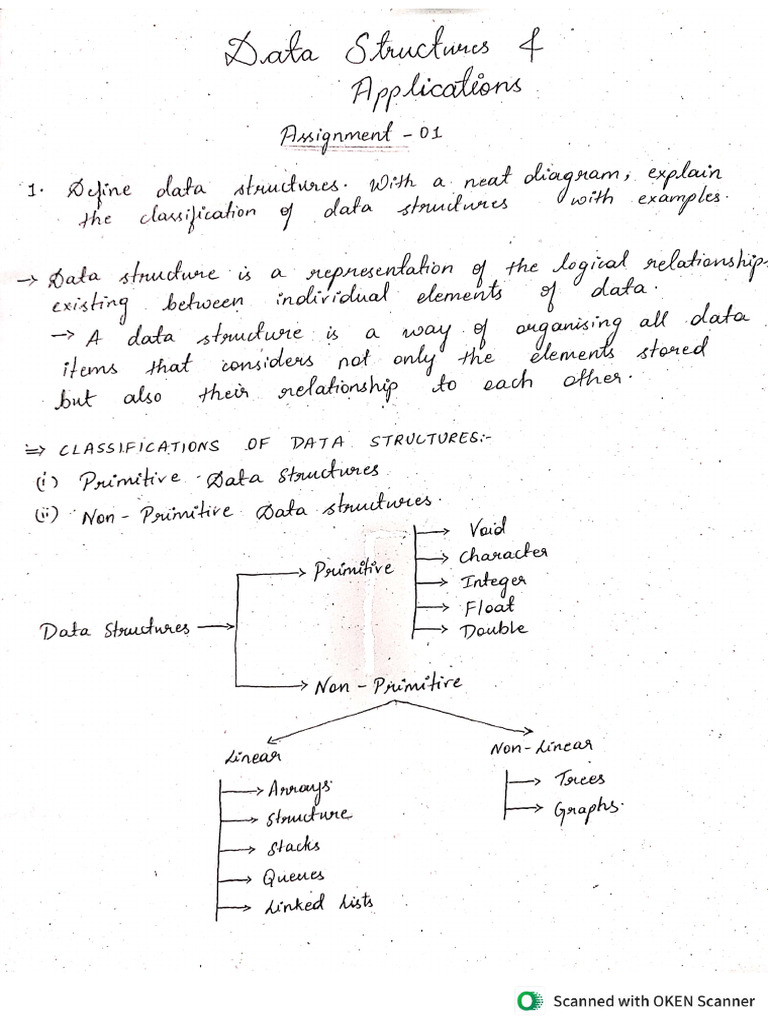 Data Structures &
Applications
Assignment - 01
1. Define data structures. With a neat diagram, explain
the classification of data structures with examples.
→ Data structure is a representation of the logical relationships
existing between individual elements of data.
→ A data structure is a way of organising all data
items that considers not only the elements stored
but also their relationship to each other.
⇒ CLASSIFICATIONS OF DATA STRUCTURES:-
(i) Primitive Data Structures
(ii) Non - Primitive Data structures.
Data Structures
Primitive
Void
Character
Integer
Float
Double
Non - Primitive
Linear
Arrays
Structure
Stacks
Queues
Linked Lists
Non-Linear
Trees
Graphs.
Scanned with OKEN Scanner